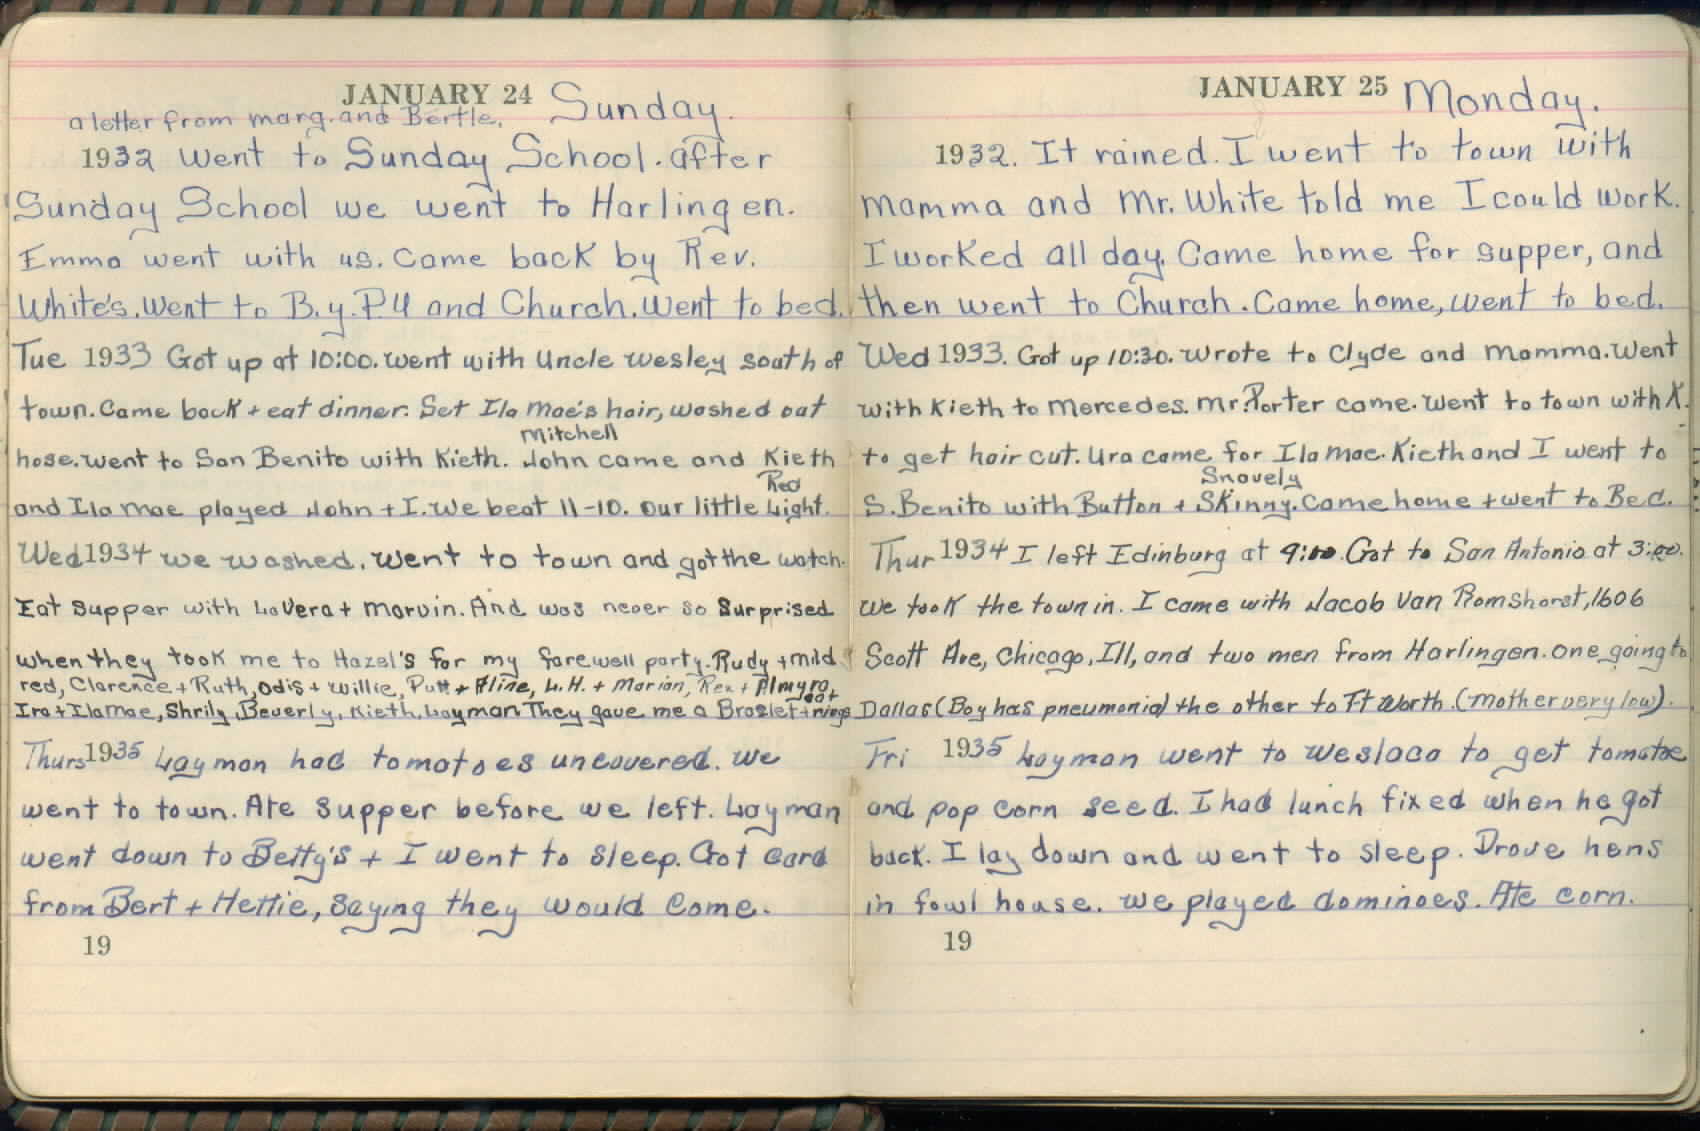 JANUARY 24 Sunday.
a letter from marg. and Bertle.
1932 went to Sunday School. after
Sunday School we went to Harlingen.
Emma went with us. Came back by Rev.
White's. Went to B.Y.P.U and Church. Went to bed.
Tue 1933 Got up at 10:00. Went with Uncle Wesley south of
town. Came back + eat dinner. Set Ila Mae's hair, washed out
Mitchell
hose. Went to San Benito with Kieth. John came and Kieth
Red
and Ila Mae played John + I. We beat 11-10. Our little Light.
Wed 1934 we washed. Went to town and got the watch.
Eat supper with LaVera + Marvin. And was never so surprised
when they took me to Hazel's for my farewell party. Rudy + mild
red, Clarence + Ruth, Odis + Willie, Putt + Aline, L.H. + Marian, Rex + Almyra,
Ira + Ila Mae, Shrily, Beverly, Kieth, Layman They gave me a Braslet + rings
Thurs 1935 Layman had tomatoes uncovered. We
went to town. Ate supper before we left. Layman
went down to Betty's + I went to sleep. Got card
from Bert + Hettie, saying they would come.
19
JANUARY 25 Monday.
1932. It rained. I went to town with
mamma and Mr. White told me I could work.
I worked all day. Came home for supper, and
then went to Church. Came home, went to bed.
Wed 1933. Got up 10:30. Wrote to Clyde and Mamma. Went
with Kieth to Mercedes. Mr. Porter came. Went to town with K.
to get hair cut. Ura came for Ila Mae. Kieth and I went to
Snavely
S. Benito with Button + Skinny. Came home + went to Bed.
Thur 1934 I left Edinburg at 9:00. Got to San Antonio at 3:00.
We took the town in. I came with Jacob Van Romshorst, 1606
Scott Ave, Chicago, Ill, and two men from Harlingen. one going to
Dallas (Boy has pneumonia) the other to Ft Worth. (mother very low).
Fri 1935 Layman went to Weslaco to get tomatoe
and pop corn seed. I had lunch fixed when he got
back. I lay down and went to sleep. Drove hens
in fowl house. We played dominoes. Ate corn.
19